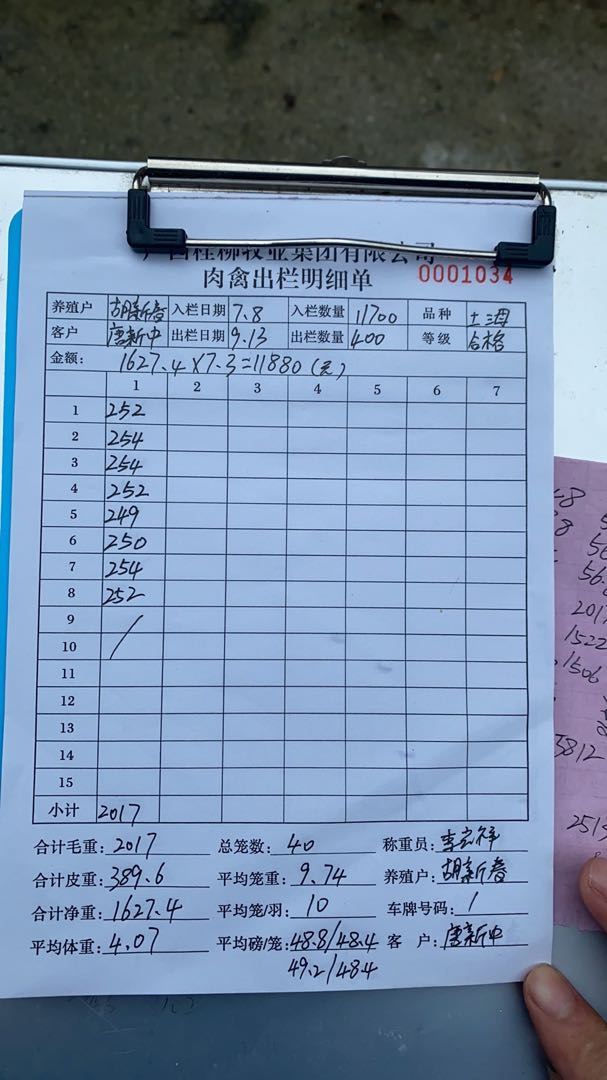 广西桂柳牧业集团有限公司
肉禽出栏明细单 0001034
养殖户 胡新春 入栏日期 7.8 入栏数量 11700 品种
客户 唐新中 出栏日期 9.13 出栏数量 400 等级 合格
金额: 1627.4×7.3=11880(元)
1 2 3 4 5 6 7
1 252
2 254
3 254
4 252
5 249
6 250
7 254
8 252
9
10 /
11
12
13
14
15
小计 2017
合计毛重: 2017 总笼数: 40 称重员:
合计皮重: 389.6 平均笼重: 9.74 养殖户: 胡新春
合计净重: 1627.4 平均笼/羽: 10 车牌号码: /
平均体重: 4.07 平均磅/笼: 48.8/48.4 客 户: 唐新中
49.2/48.4
48
56.
2017
1522
1506
5812